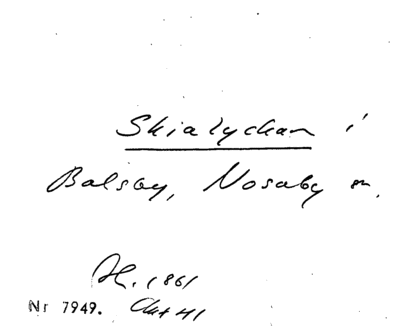 Skialyckan i
Balsby, Nosaby sn.
H. 1861
Nr 7949. Akt 41